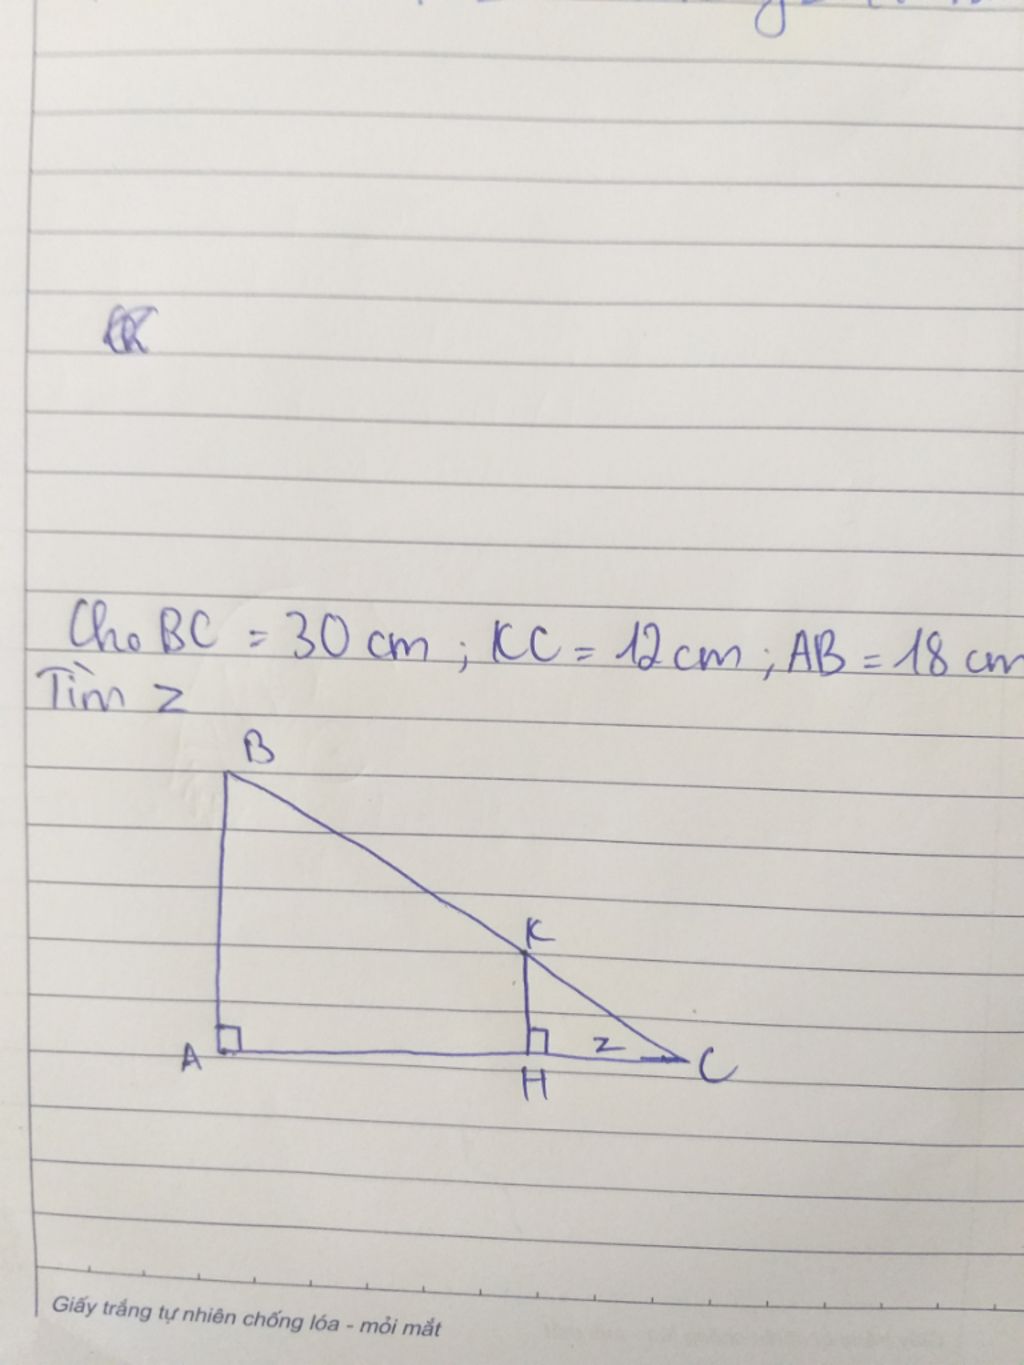 Cho BC = 30 cm ; KC = 12 cm ; AB = 18 cm
Tìm z
B
K
A
H
z
C
Giấy trắng tự nhiên chống lóa - mỏi mắt